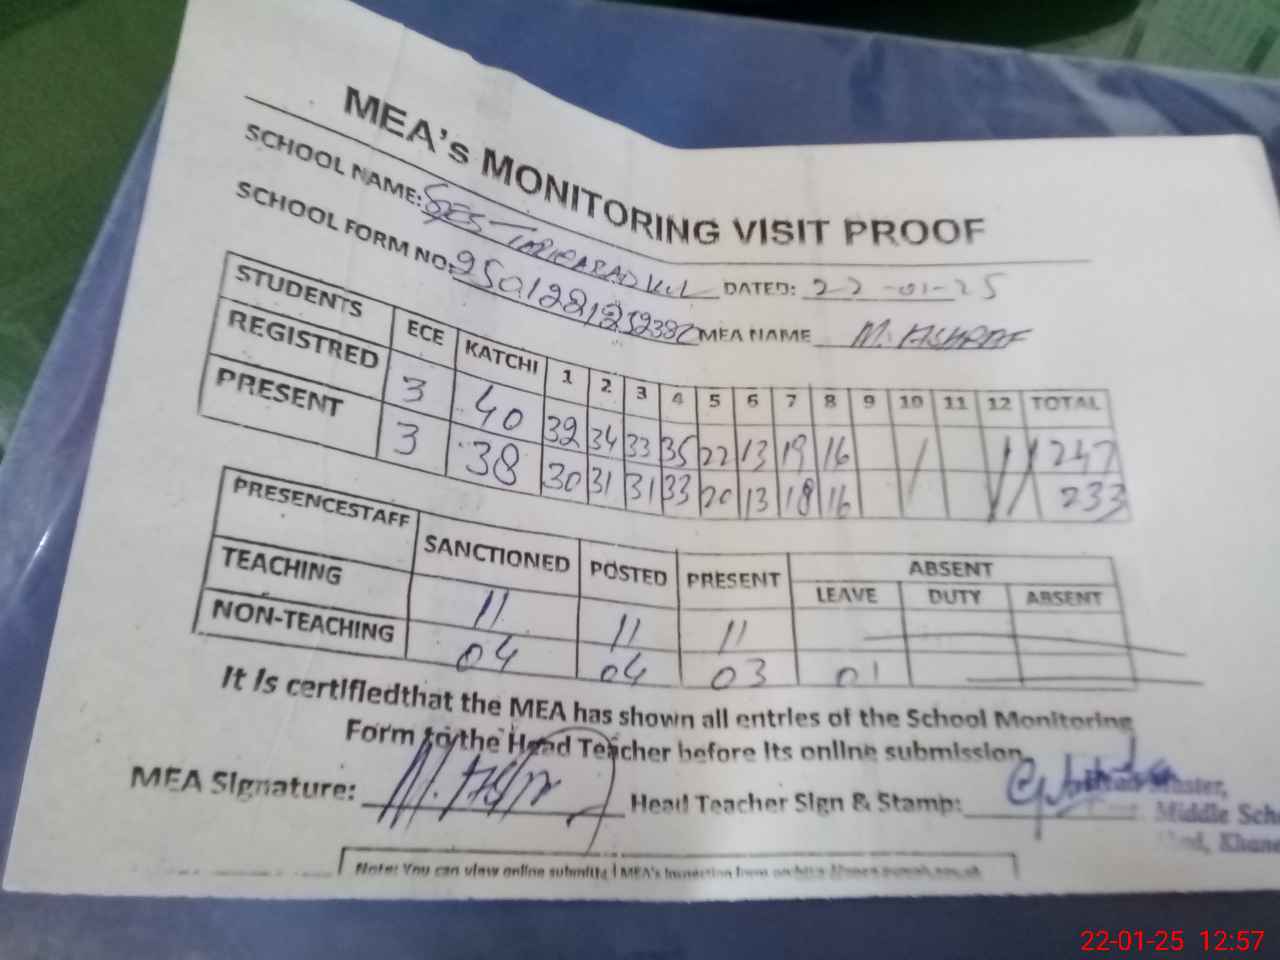 MEA's MONITORING VISIT PROOF
SCHOOL NAME: DATED: 22-01-25
SCHOOL FORM NO: MEA NAME M. ASHRAF
STUDENTS ECE KATCHI 1 2 3 4 5 6 7 8 9 10 11 12 TOTAL
REGISTRED 3 40 32 34 33 35 22 13 19 16 247
PRESENT 3 38 30 31 31 33 20 13 18 16 233
PRESENCESTAFF SANCTIONED POSTED PRESENT ABSENT
LEAVE DUTY ABSENT
TEACHING 11 11 11
NON-TEACHING 04 04 03 01
It is certifiedthat the MEA has shown all entries of the School Monitoring
Form to the Head Teacher before its online submission
MEA Signature: Head Teacher Sign & Stamp:
Middle Sch
Note: You can view online MEA's
22-01-25 12:57